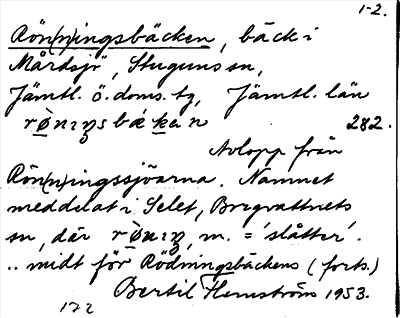 1-2.
Rön(n)ingsbäcken, bäck i
Mårdsjö, Stuguns sn,
Jämtl. ö. doms. tg, Jämtl. län
282.
Avlopp från
Rön(n)ingssjöarna. Namnet
meddelat i Selet, Bregvattnets
sn, där m. = 'slåtter'.
.. midt för Rödningsbäckens (forts.)
Bertil Flemström 1953.
172